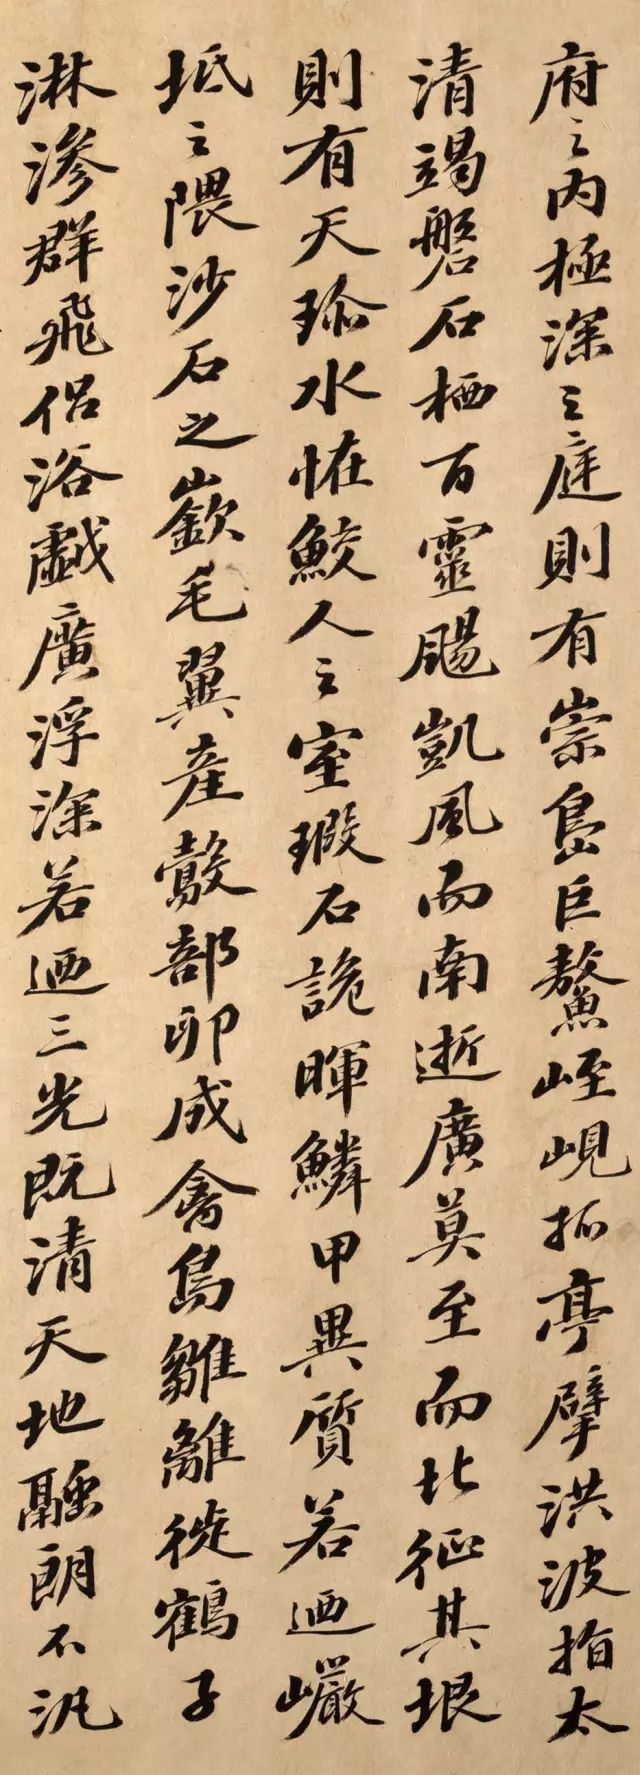 府之內極深之庭則有崇島巨鰲峌峴孤亭擘洪波指太
清竭磐石栖百靈颺凱風而南逝廣莫至而北征其垠
則有天琛水恠鮫人之室瑕石詭暉鱗甲異質若迺巖
坻之隈沙石之嶔毛翼產鷇剖卵成禽鳧雛離褷鶴子
淋滲群飛侶浴戲廣浮深若迺三光既清天地融朗不汎